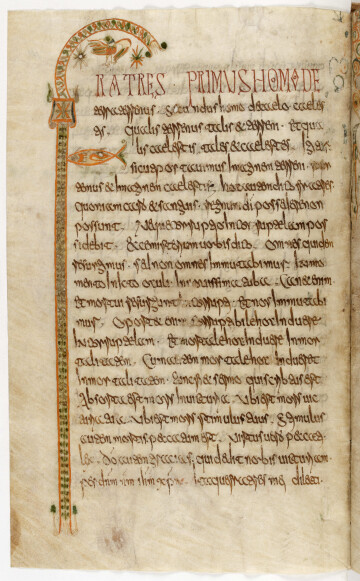 FRATRES PRIMUS HOMO DE
terra terrenus. Secundus homo de caelo caeles
tis. Qualis terrenus talis et terreni. Et qua
lis caelestis. tales et caelestes. Igitur
sicut portavimus imaginem terreni. porte
mus et imaginem caelestis. hoc autem dico fratres
quoniam caro et sanguis. regnum di possedere non
possunt. Neque corruptio incorruptelam pos
sidebit. Ecce misterium vobis dico. Omnes quidem
resurgimus. sed non omnes inmutabimur. In mo
mento in ictu oculi. In novissima tuba. Canet enim
et mortui resurgunt incorrupti. et nos inmutabi
mur. Oportet enim corruptibile hoc induere
incorruptelam. et mortale hoc induere inmor
talitatem. Cum autem mortale hoc induerit
inmortalitatem. tunc fiet sermo qui scribtus est
Absorta est mors in victoria. Ubi est mors vic
toria tua. Ubi est mors stimulus tuus. Stimulus
autem mortis peccatum est. Virtus vero pecca
lex. Do autem gratias. qui dedit nobis victoriam
per dnm nm ihm xpm. Itaque fratres mei dilecti.